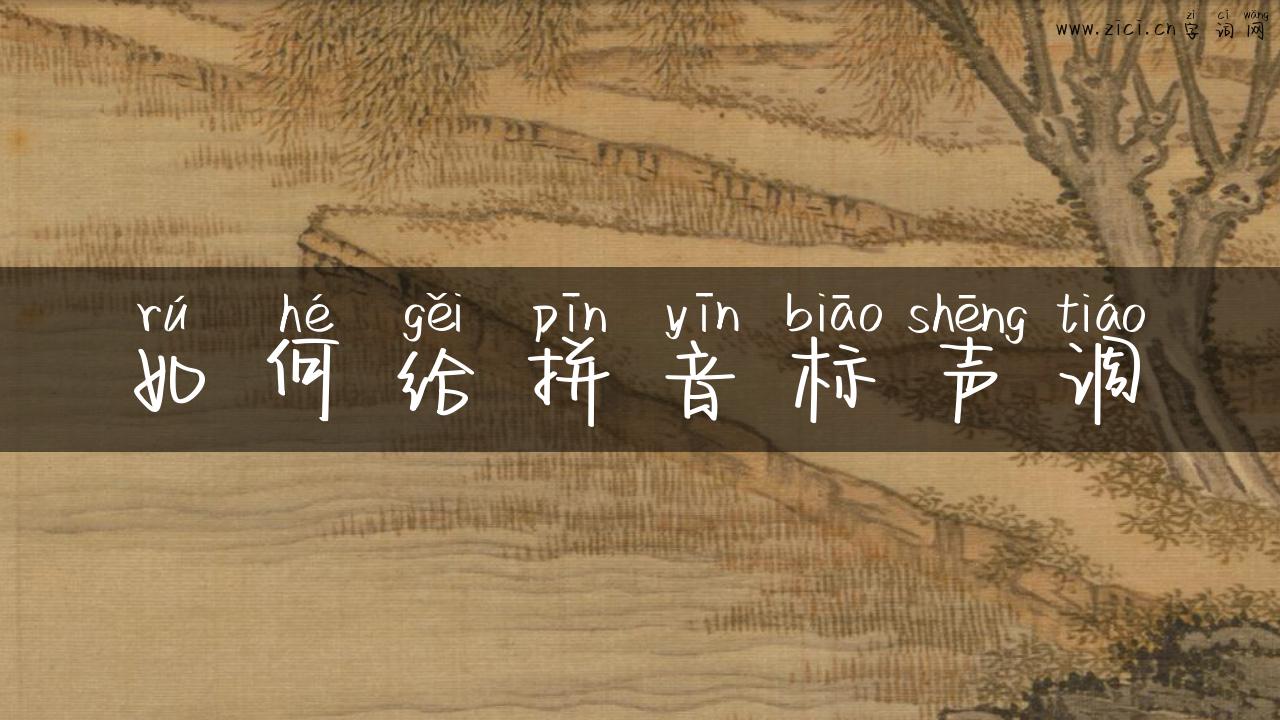 zì cí wǎng
www.zici.cn字词网
rú hé gěi pīn yīn biāo shēng tiáo
如何给拼音标声调